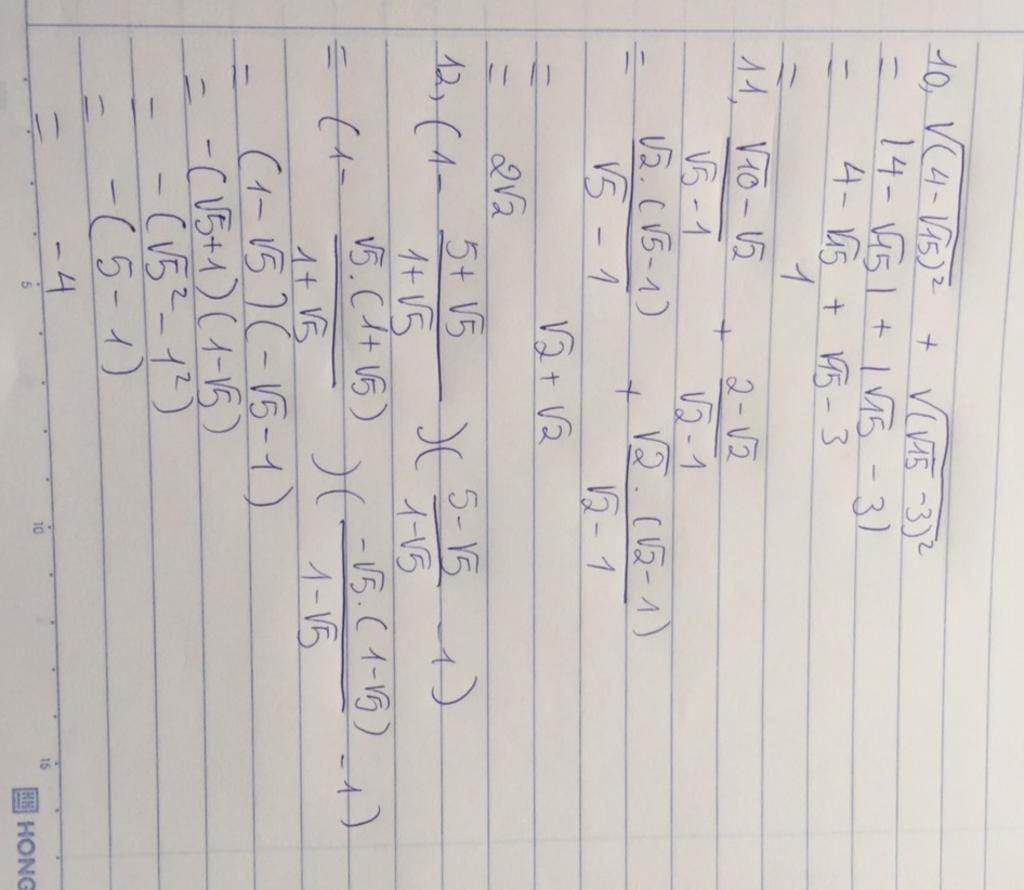 10, √(4-√15)² + √(√15-3)²
= |4-√15| + |√15-3|
= 4-√15 + √15-3
= 1
11, (√10-√2)/(√5-1) + (2-√2)/(√2-1)
= √2.(√5-1)/(√5-1) + √2.(√2-1)/(√2-1)
= √2+√2
= 2√2
12, (1- (5+√5)/(1+√5))((5-√5)/(1-√5) -1)
= (1- √5.(1+√5)/(1+√5))(-√5.(1-√5)/(1-√5) -1)
= (1-√5)(-√5-1)
= -(√5+1)(1-√5)
= -(√5²-1²)
= -(5-1)
= -4
5 10 15
HH HONG